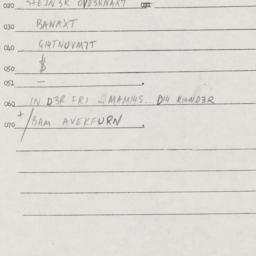 020 STEJN3R OVD3RNAXT
030 BANAXT
040 GI4TNUVM7T
050 $
051 —
060 IN D3R FRI ... MAMI4S DI4 KIND3R
070 BAM AVEKFURN